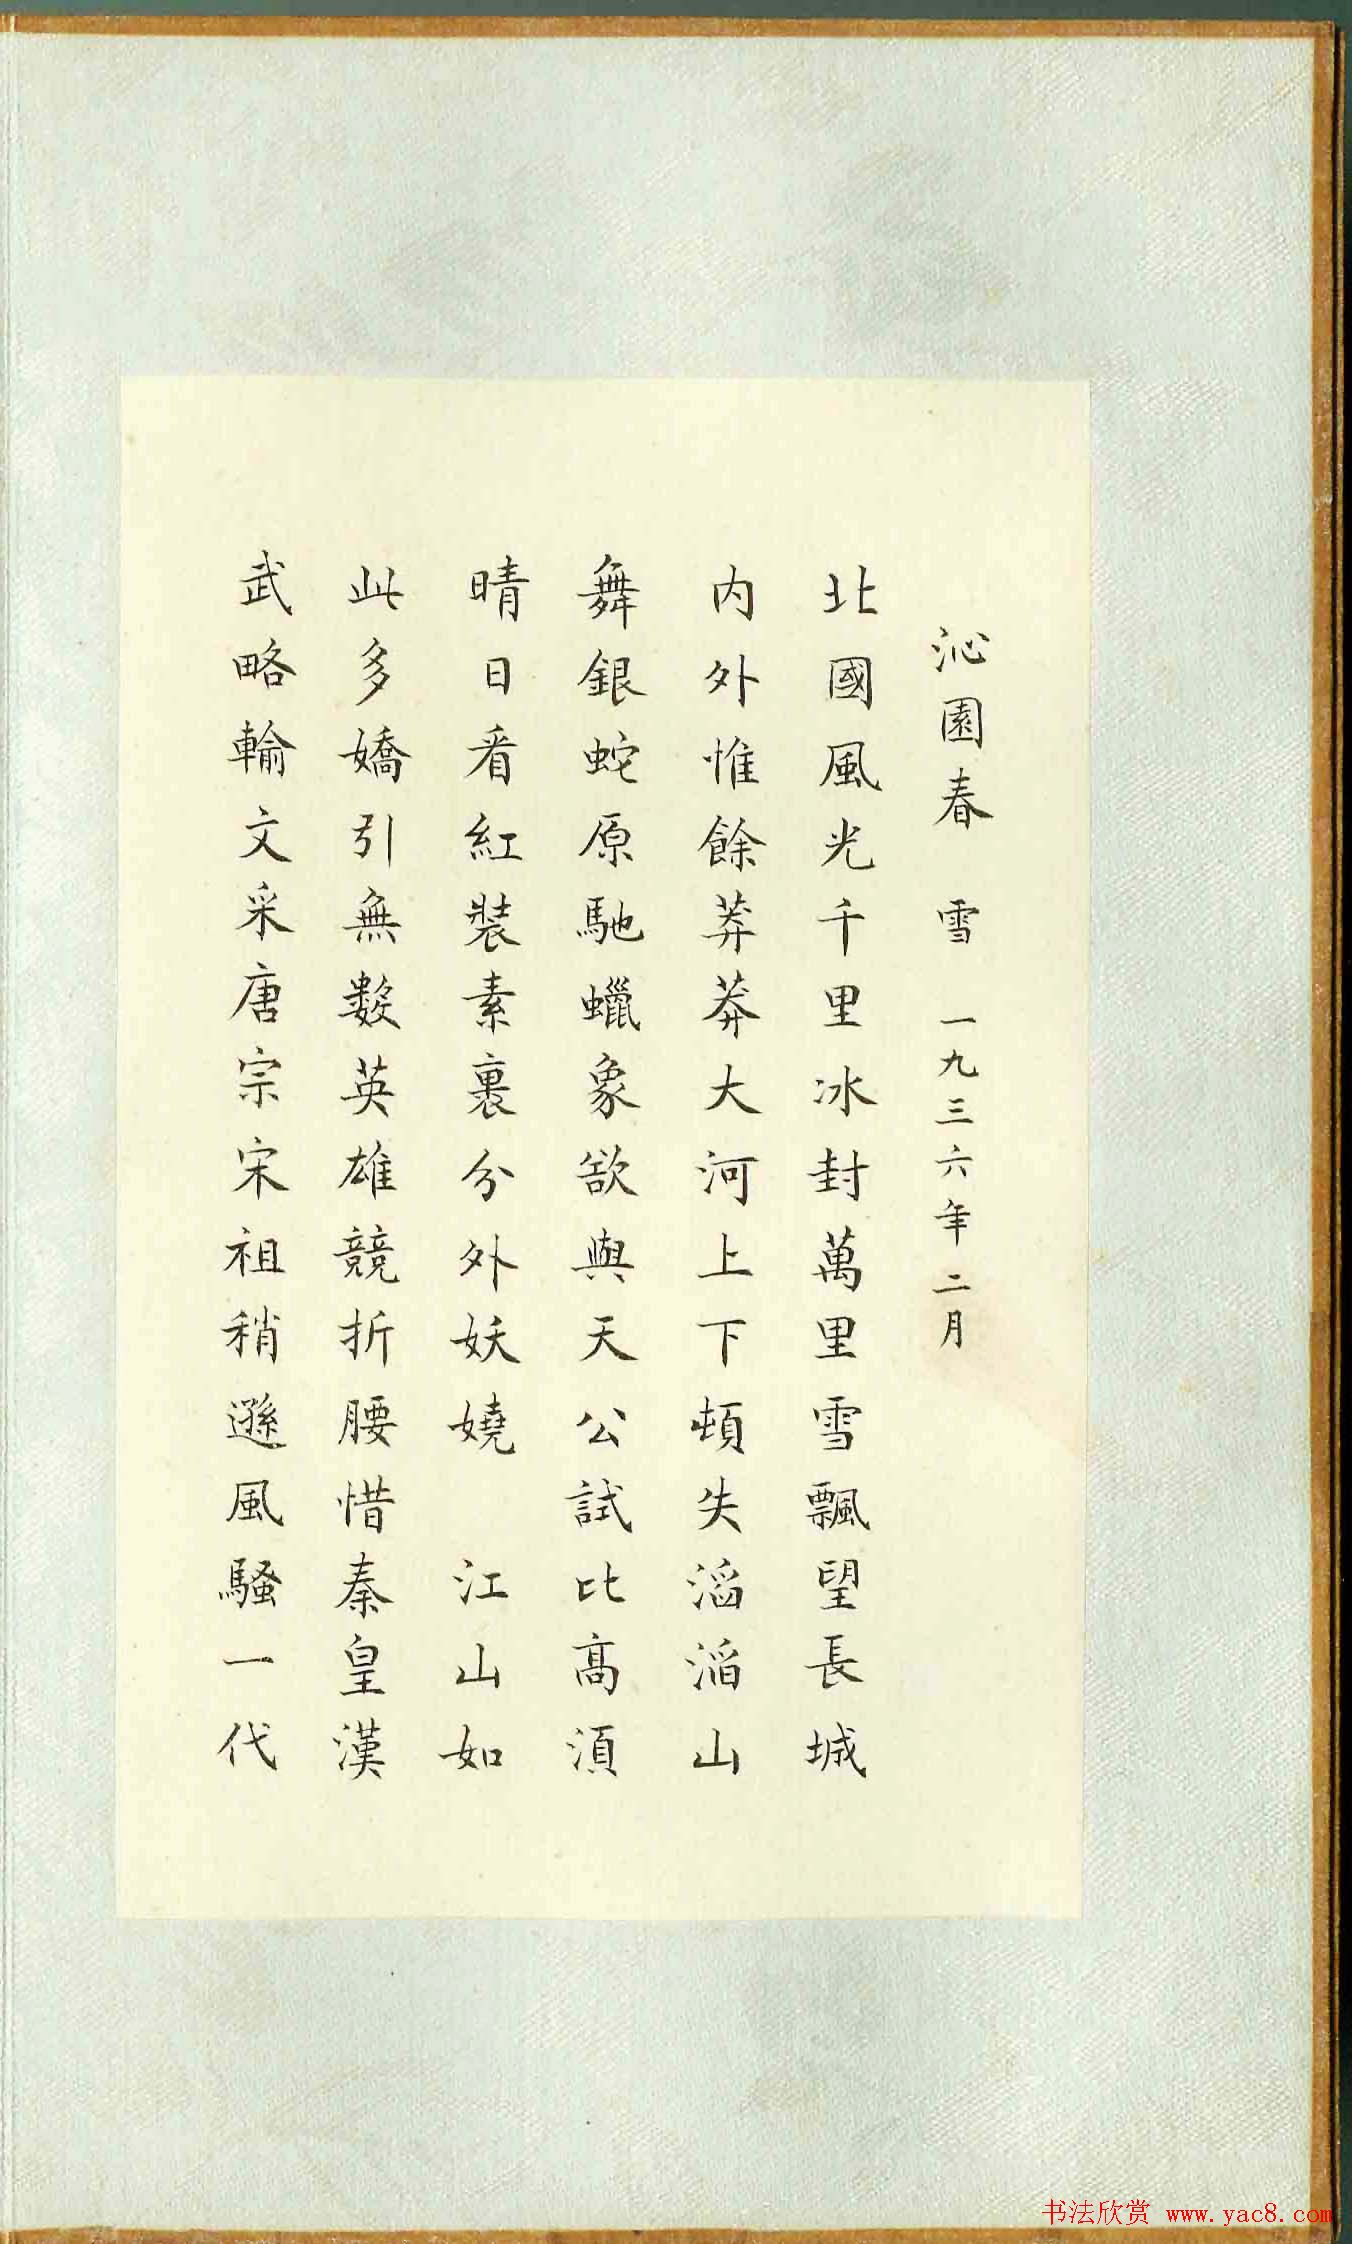 沁園春 雪 一九三六年二月
北國風光千里冰封萬里雪飄望長城
内外惟餘莽莽大河上下頓失滔滔山
舞銀蛇原馳蠟象欲與天公試比高須
晴日看紅裝素裹分外妖嬈 江山如
此多嬌引無数英雄競折腰惜秦皇漢
武略輸文采唐宗宋祖稍遜風騷一代
书法欣赏 www.yac8.com